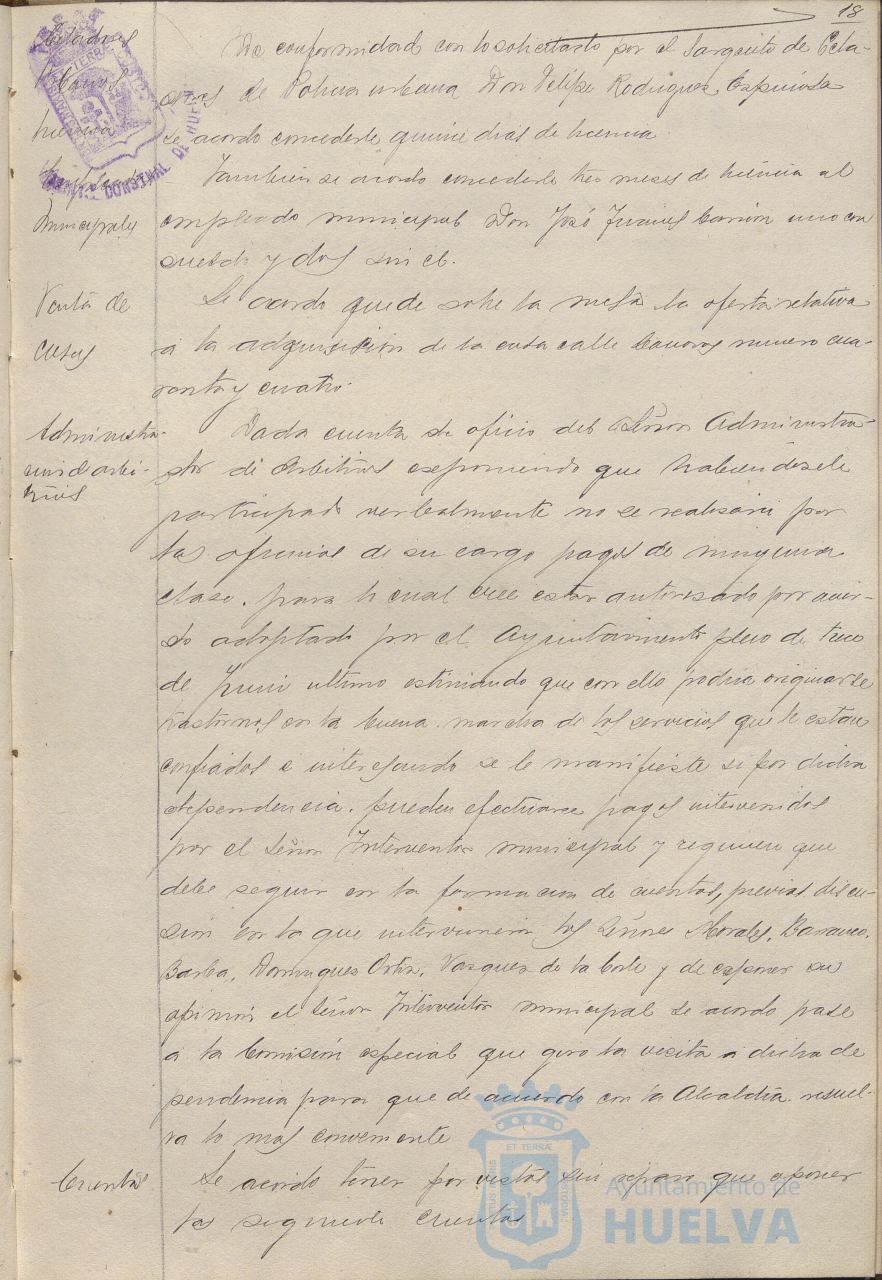 18
De conformidad con lo solicitado por el Sargento de Cela-
dores de Policia urbana Don Felipe Rodriguez Espinosa
se acordo concederle quince dias de licencia.
Tambien se acordo concederle tres meses de licencia al
empleado municipal Don José Carrión uno con
sueldo y dos sin el.
Municipales
Venta de
casas
Se acordo quede sobre la mesa la oferta relativa
a la adquisición de la casa calle numero cua-
renta y cuatro.
Administra-
cion de arbi-
trios
Dada cuenta de oficio del Señor Administra-
dor de Arbitrios exponiendo que habiendosele
participado verbalmente no se realizara por
las oficinas de su cargo pagos de ninguna
clase, para lo cual cree estar autorizado por acuer-
do adoptado por el Ayuntamiento pleno de trece
de Junio ultimo estimando que con ello podria originarse
trastornos en la buena marcha de los servicios que le estan
confiados e interesando se le manifieste si por dicha
dependencia pueden efectuarse pagos intervenidos
por el Señor Interventor municipal y que
debe seguir en la formacion de cuentas, previa discu-
sion en la que intervinieron los Señores Morales, Barranco,
Barba, Dominguez Ortiz, Vazquez de la Corte y de exponer su
opinion el Señor Interventor municipal se acordo pase
a la Comisión especial que giro la visita a dicha de
pendencia para que de acuerdo con la Alcaldia resuel-
va lo mas conveniente
Cuentas
Se acordo tener por vistas sin reparo que oponer
las siguientes cuentas
ET TERRAE
Ayuntamiento de
HUELVA